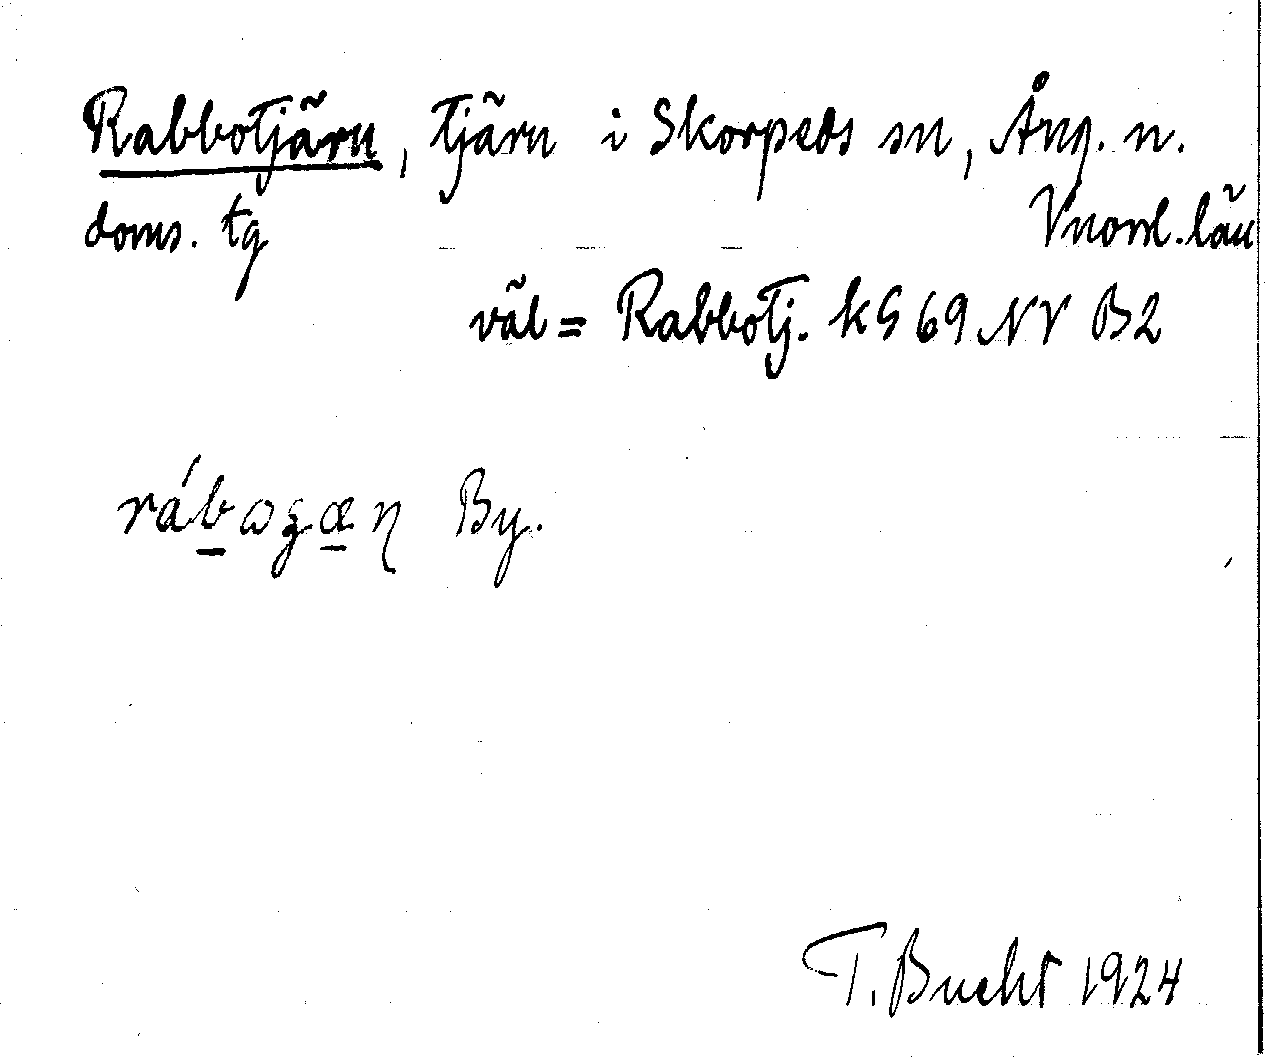 Rabbotjärn, tjärn i Skorpeds sn, Ång. n.
doms. tg Vnorrl. län
väl = Rabbotj. kG 69 NV B2
By.
T. Bucht 1924